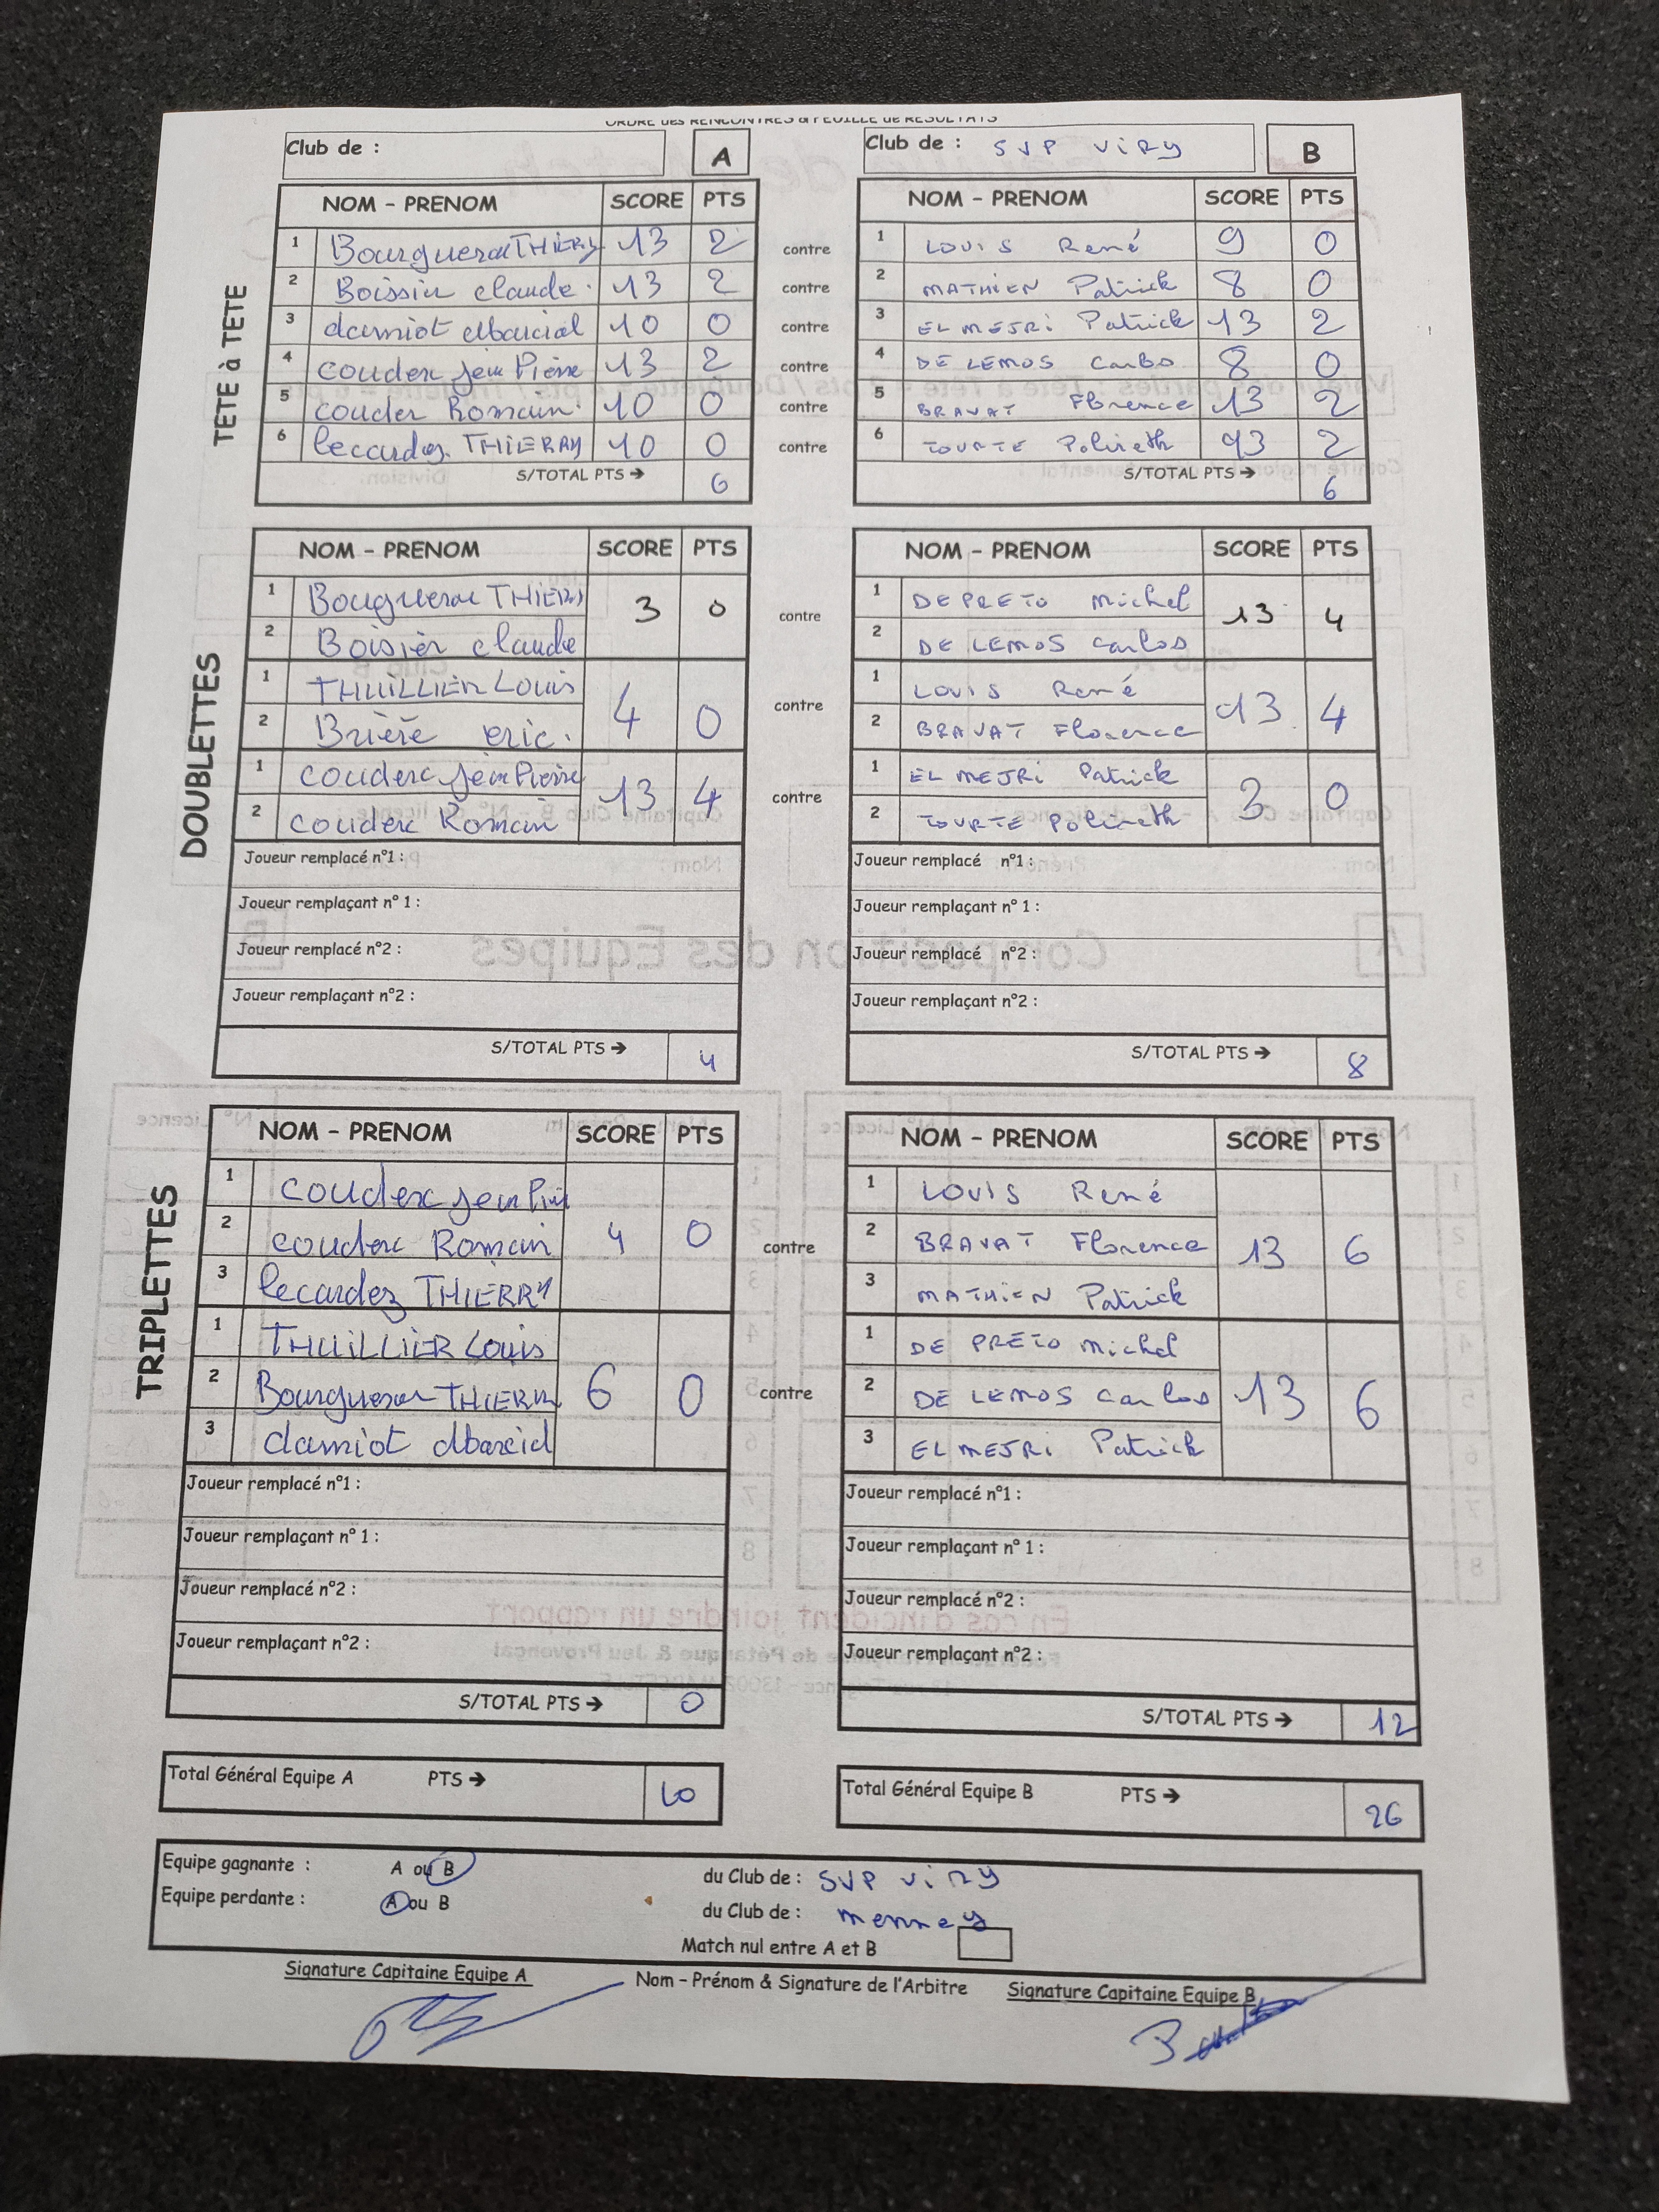 ORDRE des RENCONTRES & FEUILLE de RESULTATS
Club de : A
Club de : SVP VIRY B
TETE à TETE
NOM - PRENOM SCORE PTS NOM - PRENOM SCORE PTS
1 THIERY 13 2 contre 1 LOUIS René 9 0
2 Boissier claude 13 2 contre 2 MATHIEN Patrick 8 0
3 damiot 10 0 contre 3 EL MEJRi Patrick 13 2
4 couderc jean Pierre 13 2 contre 4 DE LEMOS Carlos 8 0
5 couderc Romain 10 0 contre 5 BRAVAT Florence 13 2
6 lecardez THIERRY 10 0 contre 6 TOURTE 13 2
S/TOTAL PTS → 6 S/TOTAL PTS → 6
DOUBLETTES
NOM - PRENOM SCORE PTS NOM - PRENOM SCORE PTS
1 1 DE PRETO Michel
3 0 contre 13 4
2 Boissier claude 2 DE LEMOS Carlos
1 THUILLIER Louis 1 LOUIS René
4 0 contre 13 4
2 Brière eric. 2 BRAVAT Florence
1 couderc jean Pierre 1 EL MEJRi Patrick
13 4 contre 3 0
2 couderc Romain 2 TOURTE
Joueur remplacé n°1 : Joueur remplacé n°1 :
Joueur remplaçant n° 1 : Joueur remplaçant n° 1 :
Joueur remplacé n°2 : Joueur remplacé n°2 :
Joueur remplaçant n°2 : Joueur remplaçant n°2 :
S/TOTAL PTS → 4 S/TOTAL PTS → 8
TRIPLETTES
NOM - PRENOM SCORE PTS NOM - PRENOM SCORE PTS
1 couderc jean 1 LOUIS René
2 couderc Romain 4 0 contre 2 BRAVAT Florence 13 6
3 lecardez THIERRY 3 MATHIEN Patrick
1 THUILLIER Louis 1 DE PRETO Michel
2 THIERRY 6 0 contre 2 DE LEMOS Carlos 13 6
3 damiot 3 EL MEJRi Patrick
Joueur remplacé n°1 : Joueur remplacé n°1 :
Joueur remplaçant n° 1 : Joueur remplaçant n° 1 :
Joueur remplacé n°2 : Joueur remplacé n°2 :
Joueur remplaçant n°2 : Joueur remplaçant n°2 :
S/TOTAL PTS → 0 S/TOTAL PTS → 12
Total Général Equipe A PTS → 10 Total Général Equipe B PTS → 26
Equipe gagnante : A ou B du Club de : SVP VIRY
Equipe perdante : A ou B du Club de : mennecy
Match nul entre A et B
Signature Capitaine Equipe A Nom - Prénom & Signature de l'Arbitre Signature Capitaine Equipe B